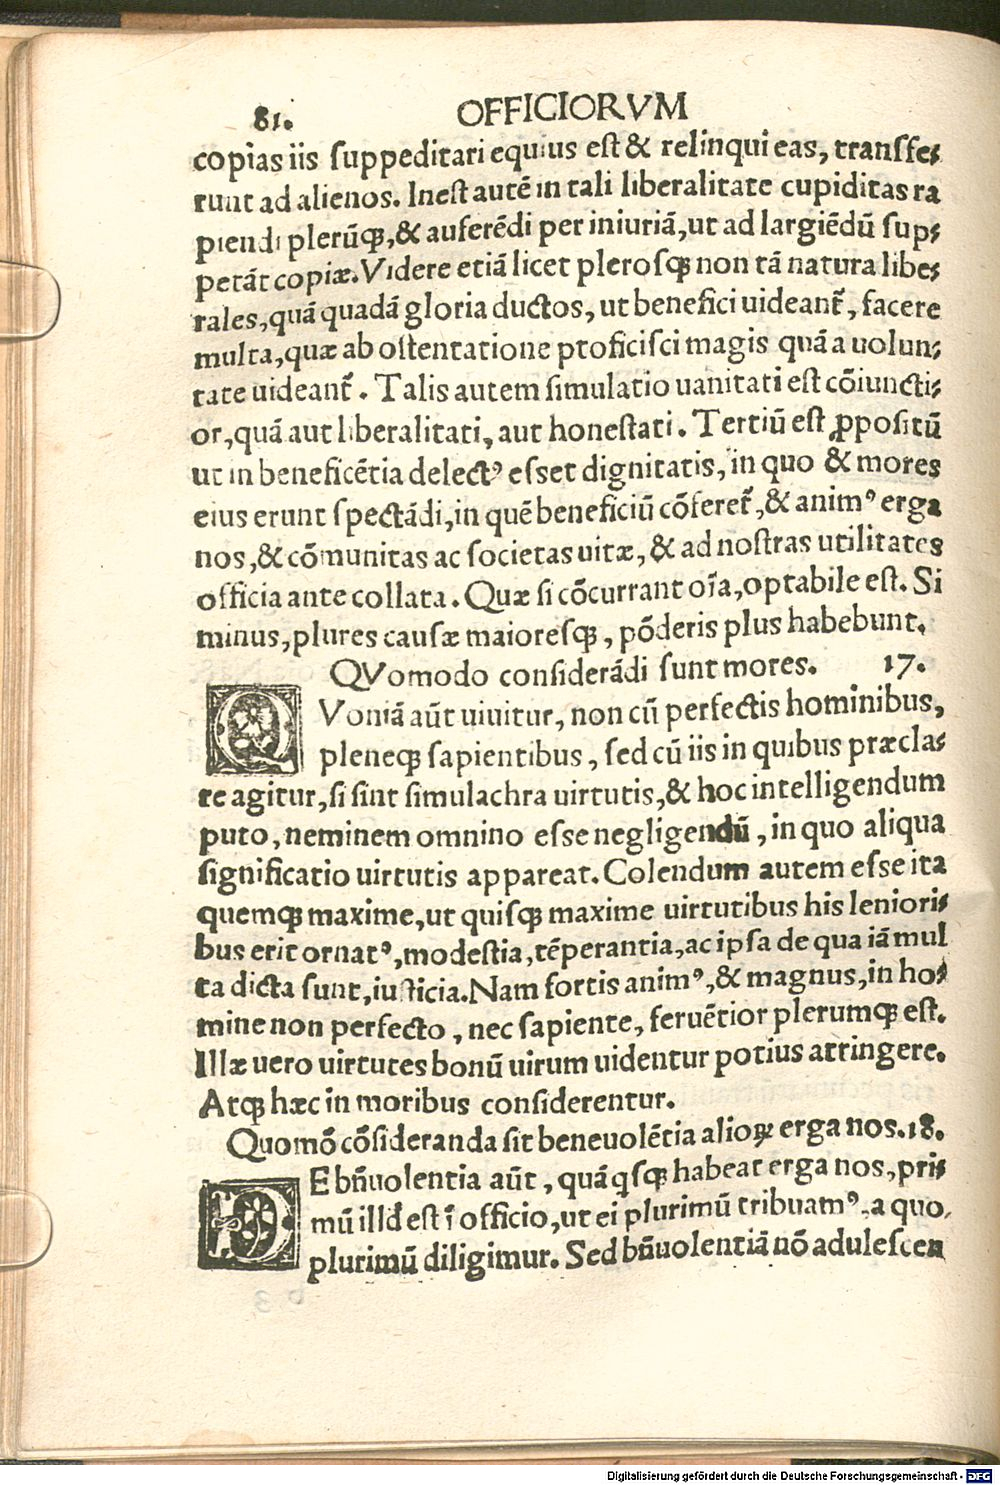 81. OFFICIORVM
copias iis ſuppeditari equius eſt & relinqui eas, tranſfe⸗
runt ad alienos. Ineſt autē in tali liberalitate cupiditas ra
piendi plerūꝙ, & auferēdi per iniuriā, ut ad largiēdū ſup⸗
petāt copiæ. Videre etiā licet pleroſꝙ non tā natura libe⸗
rales, quā quadā gloria ductos, ut benefici uideant᷑, facere
multa, quæ ab oſtentatione proficiſci magis quā a uolun⸗
tate uideant᷑. Talis autem ſimulatio uanitati eſt cōiuncti⸗
or, quā aut liberalitati, aut honeſtati. Tertiū eſt ꝓpoſitū
ut in beneficētia delectꝰ eſſet dignitatis, in quo & mores
eius erunt ſpectādi, in quē beneficiū cōferet᷑, & animꝰ erga
nos, & cōmunitas ac ſocietas uitæ, & ad noſtras utilitates
officia ante collata. Quæ ſi cōcurrant oīa, optabile eſt. Si
minus, plures cauſæ maioreſꝙ, pōderis plus habebunt.
QVomodo conſiderādi ſunt mores. 17.
QVoniā aūt uiuitur, non cū perfectis hominibus,
pleneꝙ ſapientibus, ſed cū iis in quibus præcla⸗
re agitur, ſi ſint ſimulachra uirtutis, & hoc intelligendum
puto, neminem omnino eſſe negligendū, in quo aliqua
ſignificatio uirtutis appareat. Colendum autem eſſe ita
quemꝙ maxime, ut quiſꝙ maxime uirtutibus his leniori⸗
bus erit ornatꝰ, modeſtia, tēperantia, ac ipſa de qua iā mul
ta dicta ſunt, iuſticia. Nam fortis animꝰ, & magnus, in ho⸗
mine non perfecto, nec ſapiente, feruētior plerumꝙ eſt.
Illæ uero uirtutes bonū uirum uidentur potius attingere.
Atꝙ hæc in moribus conſiderentur.
Quomō cōſideranda ſit beneuolētia alioꝝ erga nos. 18.
DE bn̄uolentia aūt, quā qſꝙ habeat erga nos, pri⸗
mū illd̄ eſt ī officio, ut ei plurimū tribuamꝰ, a quo
plurimū diligimur. Sed bn̄uolentiā nō aduleſcen
Digitalisierung gefördert durch die Deutsche Forschungsgemeinschaft - DFG